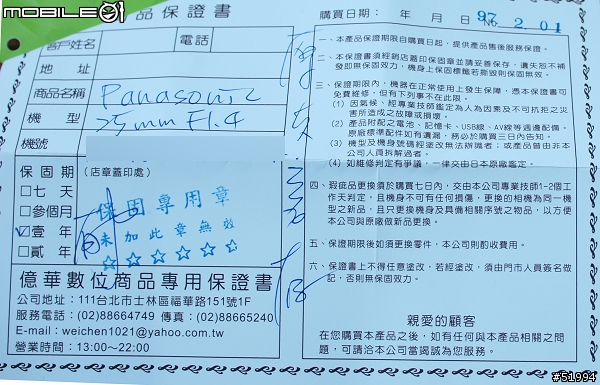 mobile01
品保證書
客戶姓名
電話
地 址
商品名稱 Panasonic
機 型 25mm F1.4
機號
保固期
□七 天
□參個月
□壹 年
□貳 年
(店章蓋印處)
保固專用章
未加此章無效
☆☆☆☆☆☆
億華數位商品專用保證書
公司地址：111台北市士林區福華路151號1F
服務電話：(02)88664749 傳真：(02)88665240
E-mail：weichen1021@yahoo.com.tw
營業時間：13:00～22:00
購買日期： 年 月 日
No.
97. 2. 01
一、本產品保證期限自購買日起，提供產品售後服務保證。
二、本保證書須經銷店蓋印保固章並請妥善保存，遺失恕不補
發即無保固效力，機身上保固標籤若撕毀則保固無效。
三、保證期限內，機器在正常使用上發生保障，憑本保證書可
免費維修，但有下列事不在此限。
(1) 因氣候、經專業技師鑑定為人為因素及不可抗拒之災
害所造成之故障或損壞。
(2) 產品附配之電池、記憶卡、USB線、AV線等週邊配備。
原廠標準配件如有遺漏，務必於購買三日內告知。
(3) 機型及機身號碼經塗改無法辨識者；或產品曾由非本
公司人員拆修過者。
(4) 如維修判定有爭議，一律交由日本原廠鑑定。
四、瑕疵品更換須於購買七日內，交由本公司專業技師1-2個工
作天判定，且機身不可有任何損傷，更換的相機為同一機
型之新品，且只更換機身及具備相關序號之物品，以方便
本公司與原廠做新品更換。
五、保證期限後如須更換零件，本公司則酌收費用。
六、保證書上不得任意塗改，若經塗改，須由門市人員簽名做
記，否則無保固效力。
親愛的顧客
在您購買本產品之後，如有任何與本產品相關之問
題，可請洽本公司當竭誠為您服務。
#51994